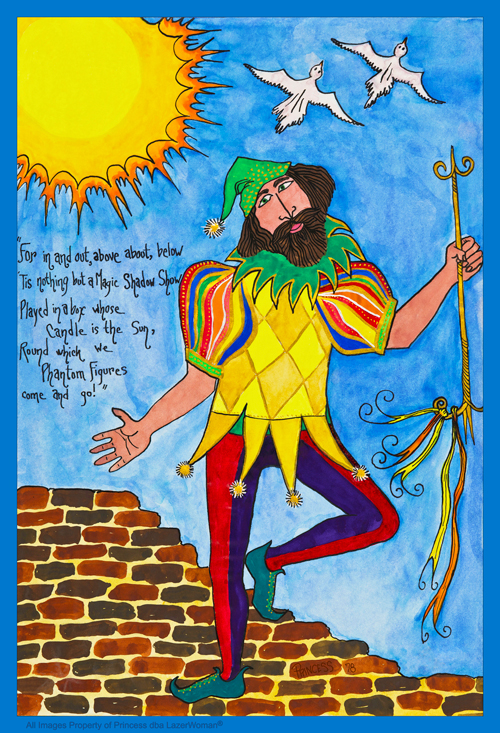 "For in and out, above, aboot, below
'Tis nothing but a Magic Shadow Show
Played in a box whose
Candle is the Sun,
Round which we
Phantom Figures
come and go!"
PRINCESS '98
All Images Property of Princess dba LazerWoman®